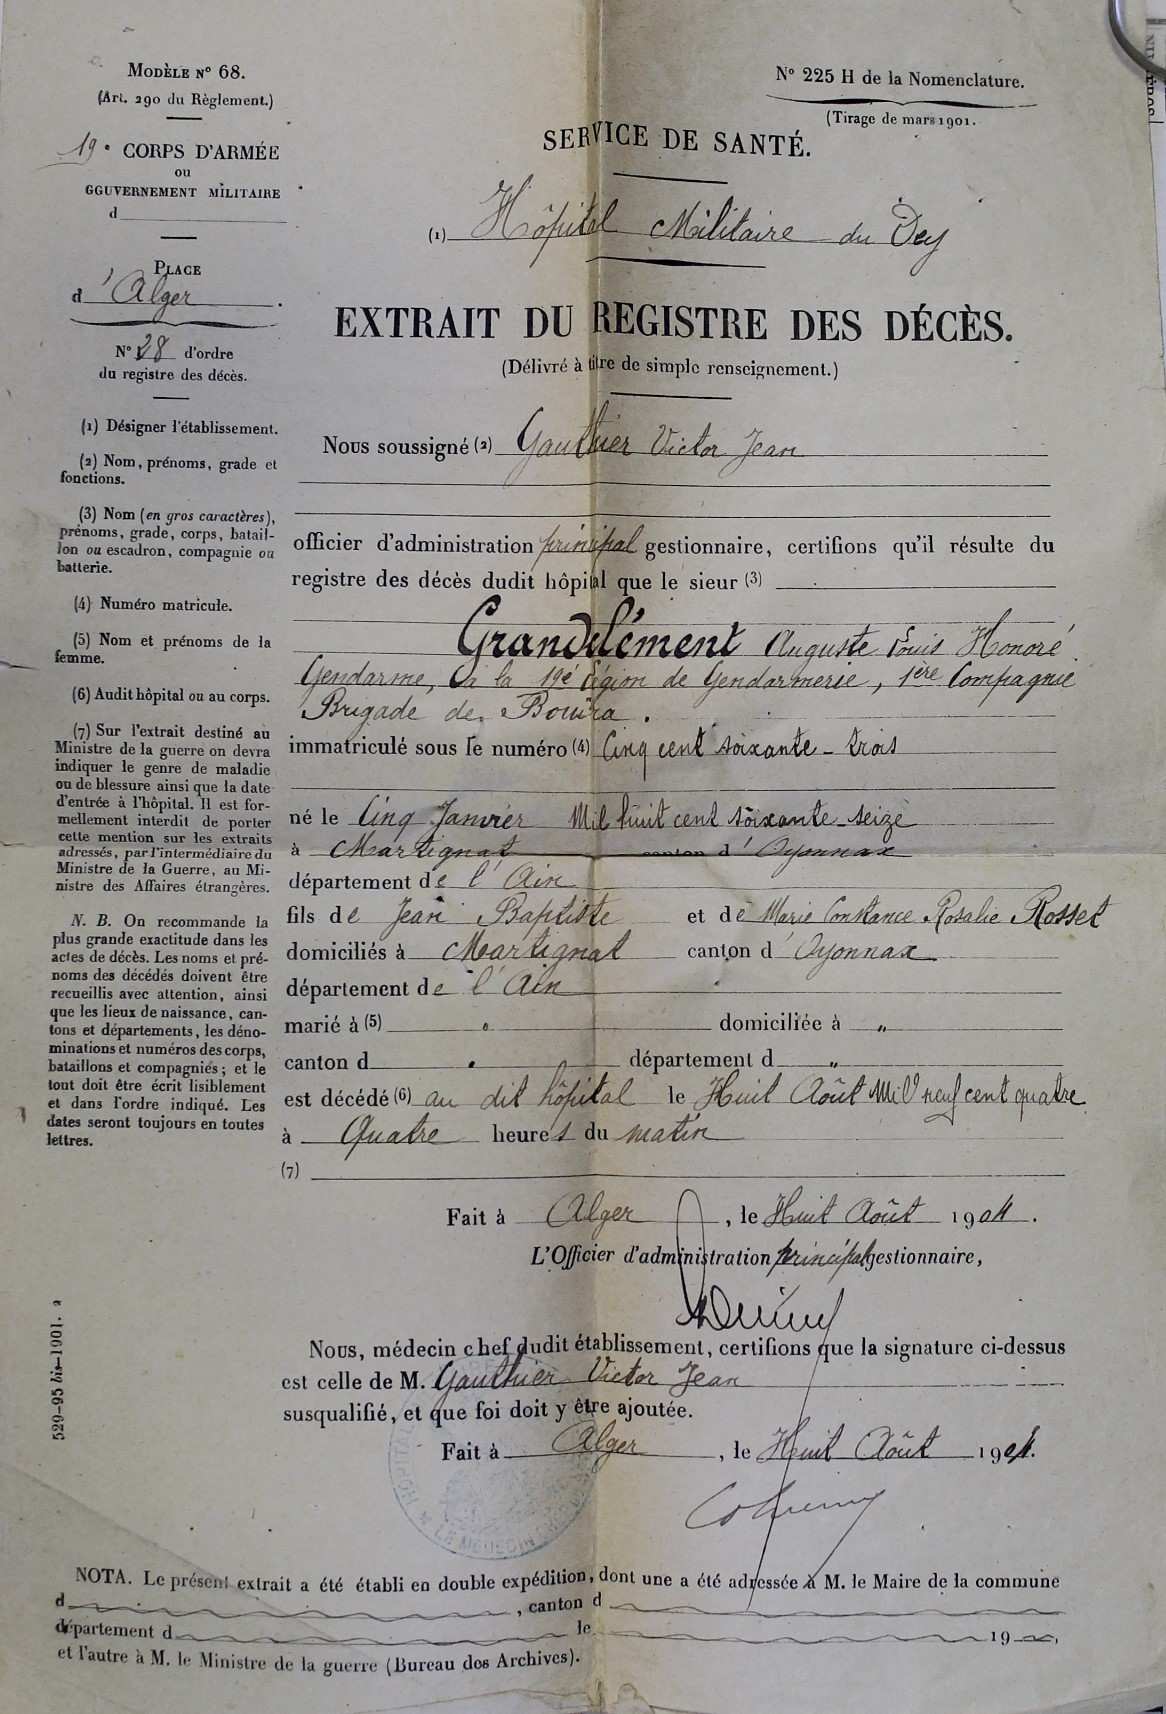 MODÈLE N° 68.
(Art. 290 du Règlement.)
19e CORPS D'ARMÉE
ou
GOUVERNEMENT MILITAIRE
d
PLACE
d'Alger.
N° 28 d'ordre
du registre des décès.
(1) Désigner l'établissement.
(2) Nom, prénoms, grade et
fonctions.
(3) Nom (en gros caractères),
prénoms, grade, corps, batail-
lon ou escadron, compagnie ou
batterie.
(4) Numéro matricule.
(5) Nom et prénoms de la
femme.
(6) Audit hôpital ou au corps.
(7) Sur l'extrait destiné au
Ministre de la guerre on devra
indiquer le genre de maladie
ou de blessure ainsi que la date
d'entrée à l'hôpital. Il est for-
mellement interdit de porter
cette mention sur les extraits
adressés, par l'intermédiaire du
Ministre de la Guerre, au Mi-
nistre des Affaires étrangères.
N. B. On recommande la
plus grande exactitude dans les
actes de décès. Les noms et pré-
noms des décédés doivent être
recueillis avec attention, ainsi
que les lieux de naissance, can-
tons et départements, les déno-
minations et numéros des corps,
bataillons et compagnies; et le
tout doit être écrit lisiblement
et dans l'ordre indiqué. Les
dates seront toujours en toutes
lettres.
529-95 bis-1901.
N° 225 H de la Nomenclature.
(Tirage de mars 1901.
SERVICE DE SANTÉ.
(1) Hôpital Militaire du Dey
EXTRAIT DU REGISTRE DES DÉCÈS.
(Délivré à titre de simple renseignement.)
Nous soussigné (2) Gauthier Victor Jean
officier d'administration principal gestionnaire, certifions qu'il résulte du
registre des décès dudit hôpital que le sieur (3)
Grandclément Auguste Louis Honoré
Gendarme, à la 19e Légion de Gendarmerie, 1ère Compagnie
Brigade de Bouïra.
immatriculé sous le numéro (4) Cinq cent soixante-trois
né le Cinq Janvier Mil huit cent soixante-seize
à Martignat canton d'Oyonnax
département de l'Ain
fils de Jean Baptiste et de Marie Constance Rosalie Rosset
domiciliés à Martignat canton d'Oyonnax
département de l'Ain
marié à (5) " domiciliée à "
canton d " département d "
est décédé (6) au dit hôpital le Huit Août Mil neuf cent quatre
à Quatre heures du matin
(7)
Fait à Alger, le Huit Août 1904.
L'Officier d'administration principal gestionnaire,
Nous, médecin chef dudit établissement, certifions que la signature ci-dessus
est celle de M. Gauthier Victor Jean
susqualifié, et que foi doit y être ajoutée.
Fait à Alger, le Huit Août 1904.
LE MEDECIN
NOTA. Le présent extrait a été établi en double expédition, dont une a été adressée à M. le Maire de la commune
d , canton d
département d le 19 ,
et l'autre à M. le Ministre de la guerre (Bureau des Archives).